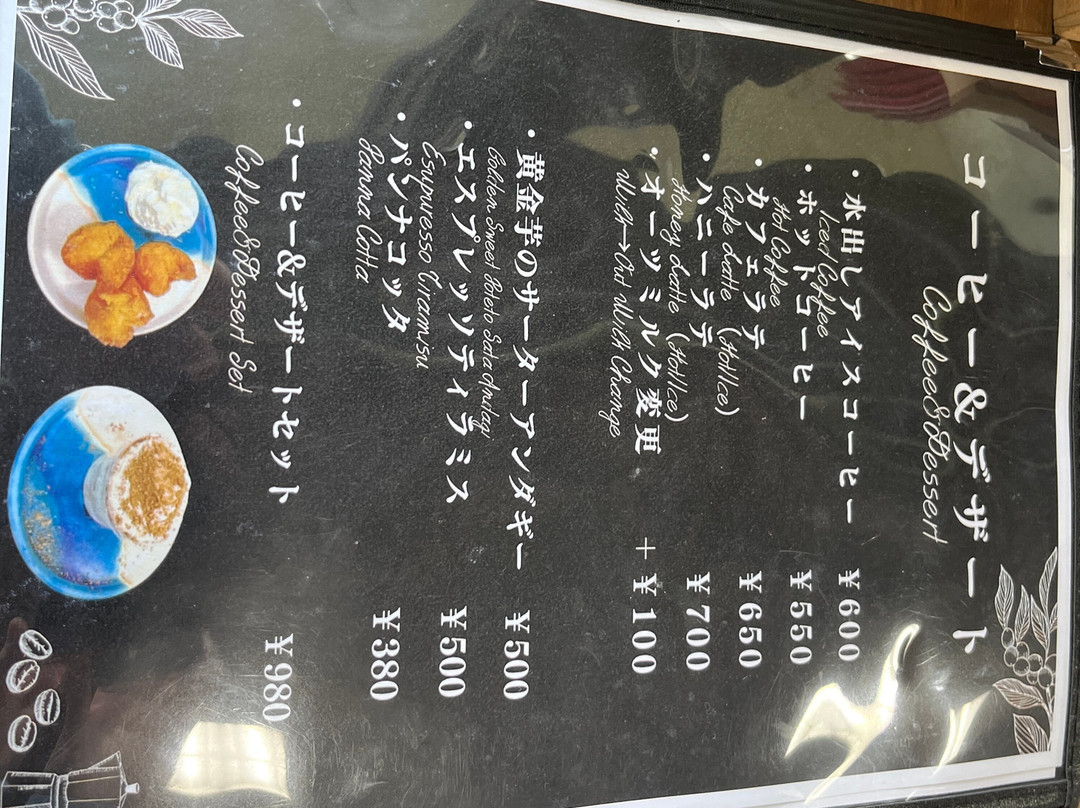 コーヒー&デザート
Coffee&Dessert
・水出しアイスコーヒー ¥600
Iced Coffee
・ホットコーヒー ¥550
Hot Coffee
・カフェラテ ¥650
Cafe Latte (Hot/Ice)
・ハニーラテ ¥700
Honey Latte (Hot/Ice)
・オーツミルク変更 +¥100
Milk→Out Milk Change
・黄金芋のサーターアンダギー ¥500
Golden Sweet Poteto Sata andagi
・エスプレッソティラミス ¥500
Esupuresso Tiramisu
・パンナコッタ ¥380
Panna Cotta
・コーヒー&デザートセット ¥980
Coffee&Dessert Set